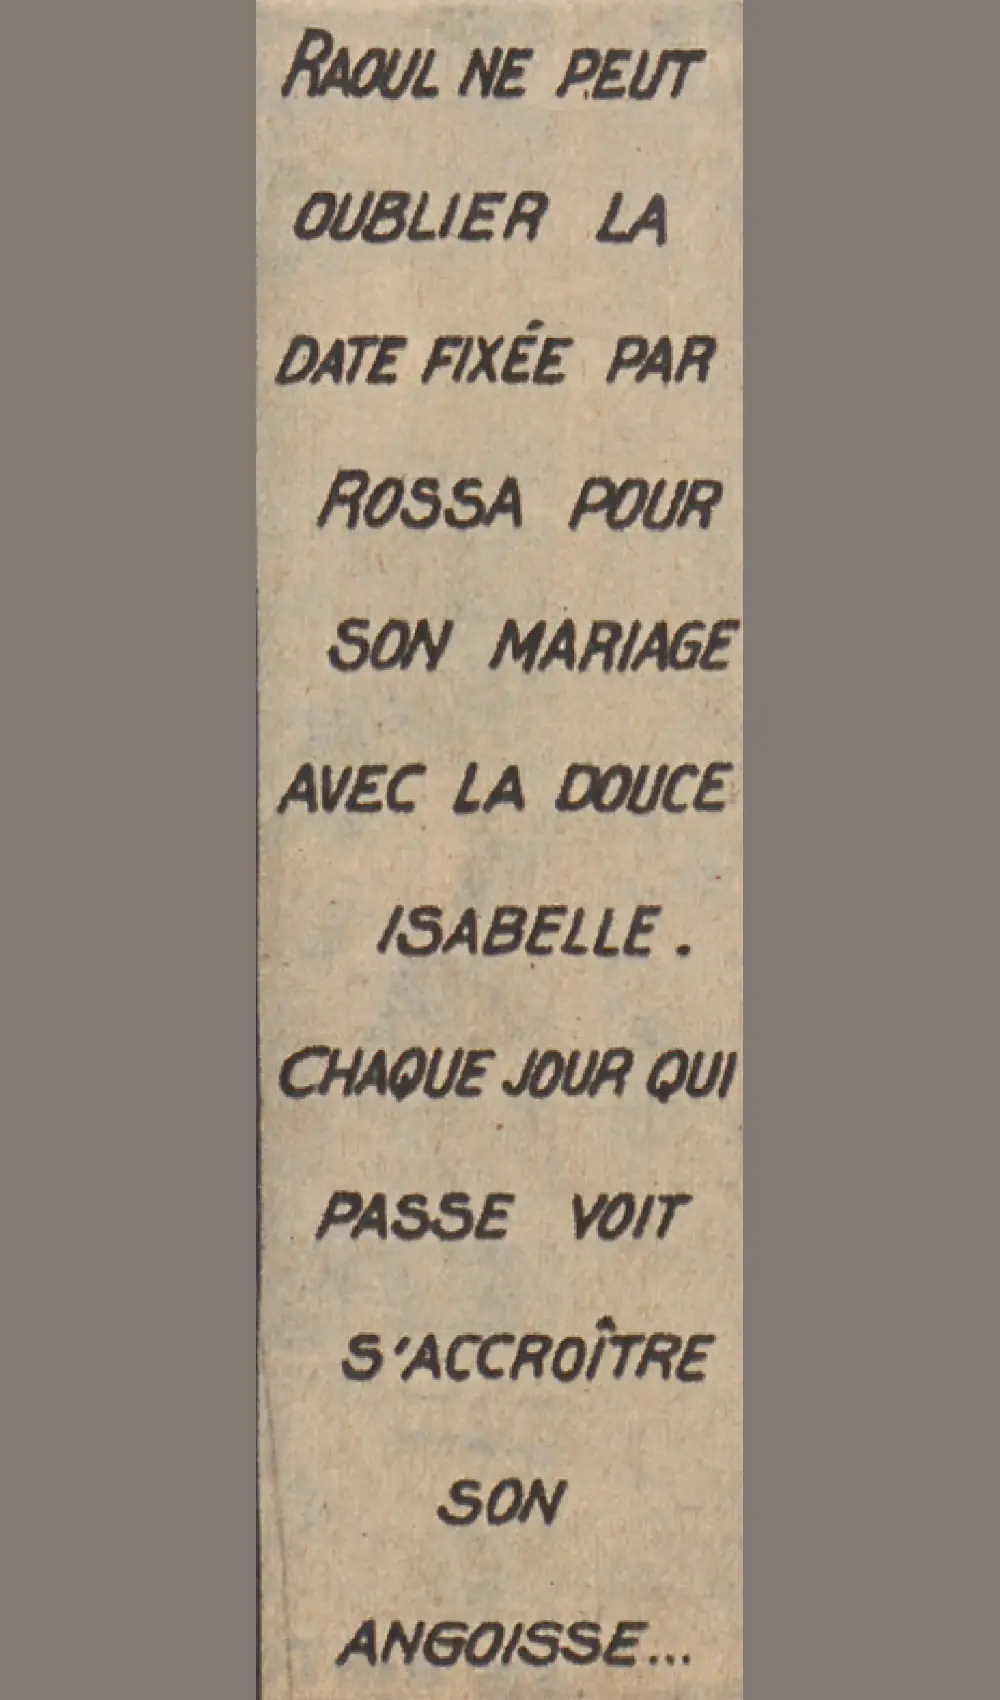 RAOUL NE PEUT
OUBLIER LA
DATE FIXÉE PAR
ROSSA POUR
SON MARIAGE
AVEC LA DOUCE
ISABELLE.
CHAQUE JOUR QUI
PASSE VOIT
S'ACCROÎTRE
SON
ANGOISSE...